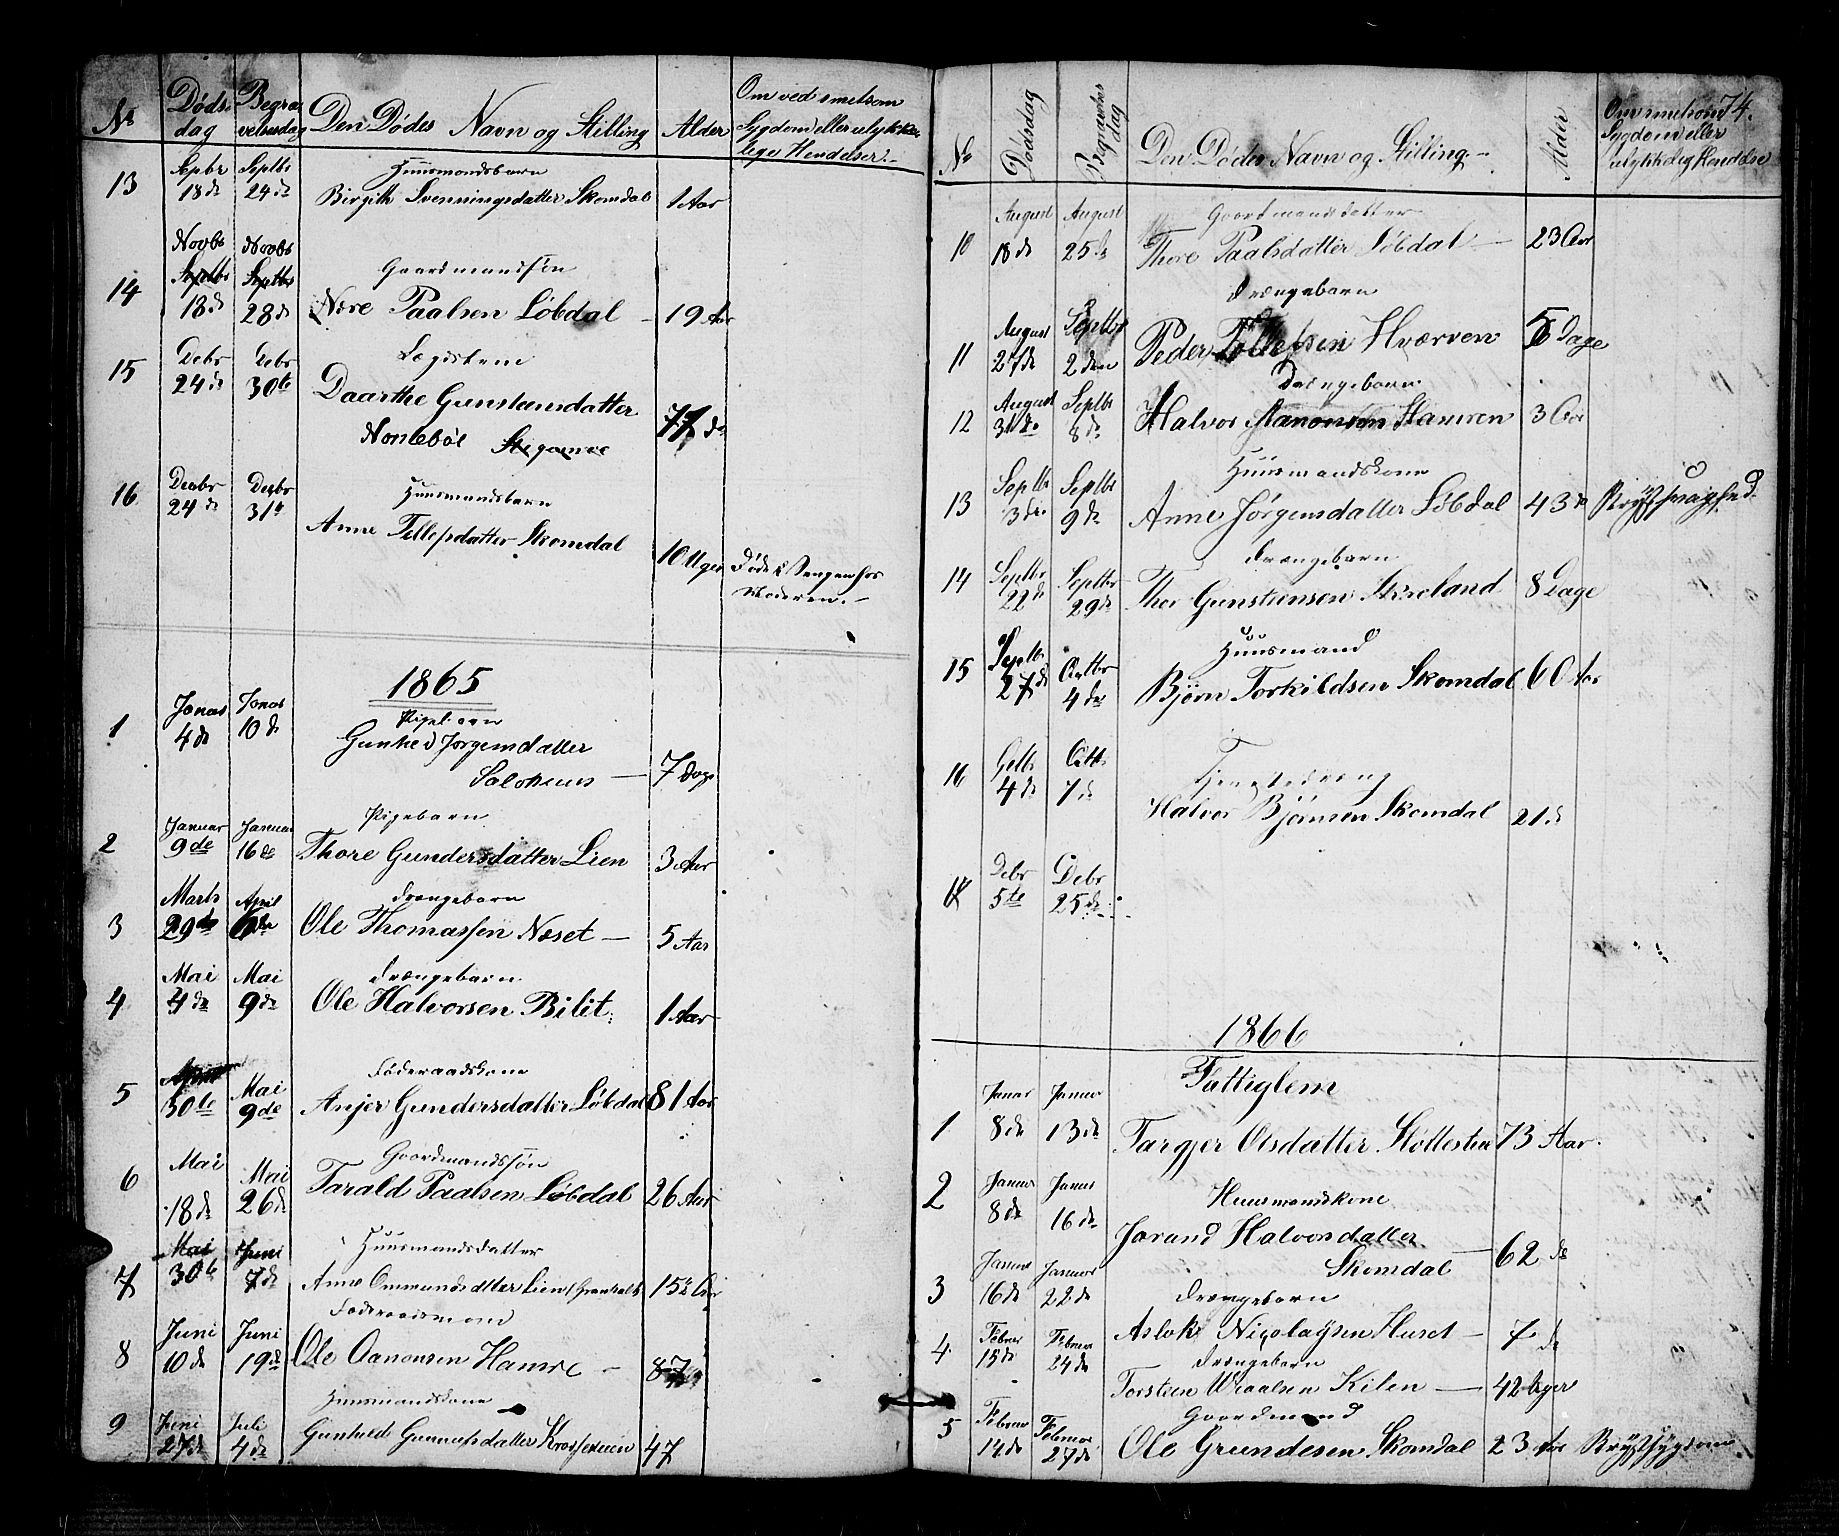 No
Døds-
dag
Begra-
velsesdag
Den Dødes Navn og Stilling
Alder
Om ved smetsom
Sygdom eller ulykke-
lige Hendelser.
13
Sepbr
18de
Septbr
24de
Huusmandsbarn
Birgith Svenningsdatter Skomdal
1 Aar
14
Novbr
Septbr
18de
Novbr
Septbr
28de
Gaardmandsøn
Paalsen Løbdal
19 Aar
15
Debr
24de
Debr
30te
Daarthe Gunstensdatter
16
24de
31te
Huusmandsbarn
Anne Tellefsdatter Skomdal
10 Uger
Døde i Sengen hos
Moderen.
1865
1
Januar
4de
Januar
10de
Pigebarn
Gunhed Jørgensdatter
7 Dage
2
Januar
9de
Januar
16de
Pigebarn
Thore Gundersdatter Lien
3 Aar
3
Marts
29de
April
6de
Drængebarn
Ole Thomassen Næset
5 Aar
4
Mai
4de
Mai
9de
Drængebarn
Ole Halvorsen Bilit
1 Aar
5
April
30te
Mai
9de
Føderaadskone
Anjer Gundersdatter Løbdal
81 Aar
6
Mai
18de
Mai
26de
Gaardmandssøn
Tarald Paalsen Løbdal
26 Aar
7
Mai
30te
Juni
7de
Huusmandsdatter
Anne Ommundsdatter Lien
8
Juni
10de
Juni
19de
Føderaadsmand
Ole Aanonsen Hamre
87
9
Juni
27de
Juli
4de
Huusmandskone
47
74.
No
Dødsdag
Begravelses
dag
Den Dødes Navn og Stilling.
Alder
Om smetsom
Sygdom eller
ulykkelig Hendelse
10
August
18de
August
25de
Gaardmandsdatter
Thore Paalsdatter Løbdal
23 Aar
11
August
27de
Septbr
2den
Drængebarn
Peder Hværven
5 Dage
12
August
31te
Septbr
8de
Drængebarn
Halvor Aanonsen Hamren
3 Aar
13
Septbr
3de
Septbr
9de
Huusmandskone
Anne Jørgensdatter Løbdal
43 de
Brystsvaghed.
14
Septbr
22de
Septbr
29de
Drængebarn
Thor Gunstensen
8 Dage
15
Septbr
27de
Octbr
4de
Huusmand
Bjørn Torkildsen Skomdal
60 Aar
16
Octbr
4de
Octbr
7de
Tjenestedreng
Halvor Bjørnsen Skomdal
21 de
Debr
5te
Debr
25de
1866
1
Januar
8de
Januar
13de
Fattiglem
Targjer Olsdatter
73 Aar.
2
Januar
8de
Januar
16de
Huusmandskone
Jorand Halvorsdatter
Skomdal
62 de
3
Januar
16de
Januar
22de
Drængebarn
Aslak Nicolaysen Huset
7 de
4
Februar
15de
Februar
24de
Drængebarn
Torsteen Kilen
42 Uger
5
Februar
14de
Februar
27de
Gaardmand
Ole Gundersen Skomdal
23 Aar
Brystsygdom